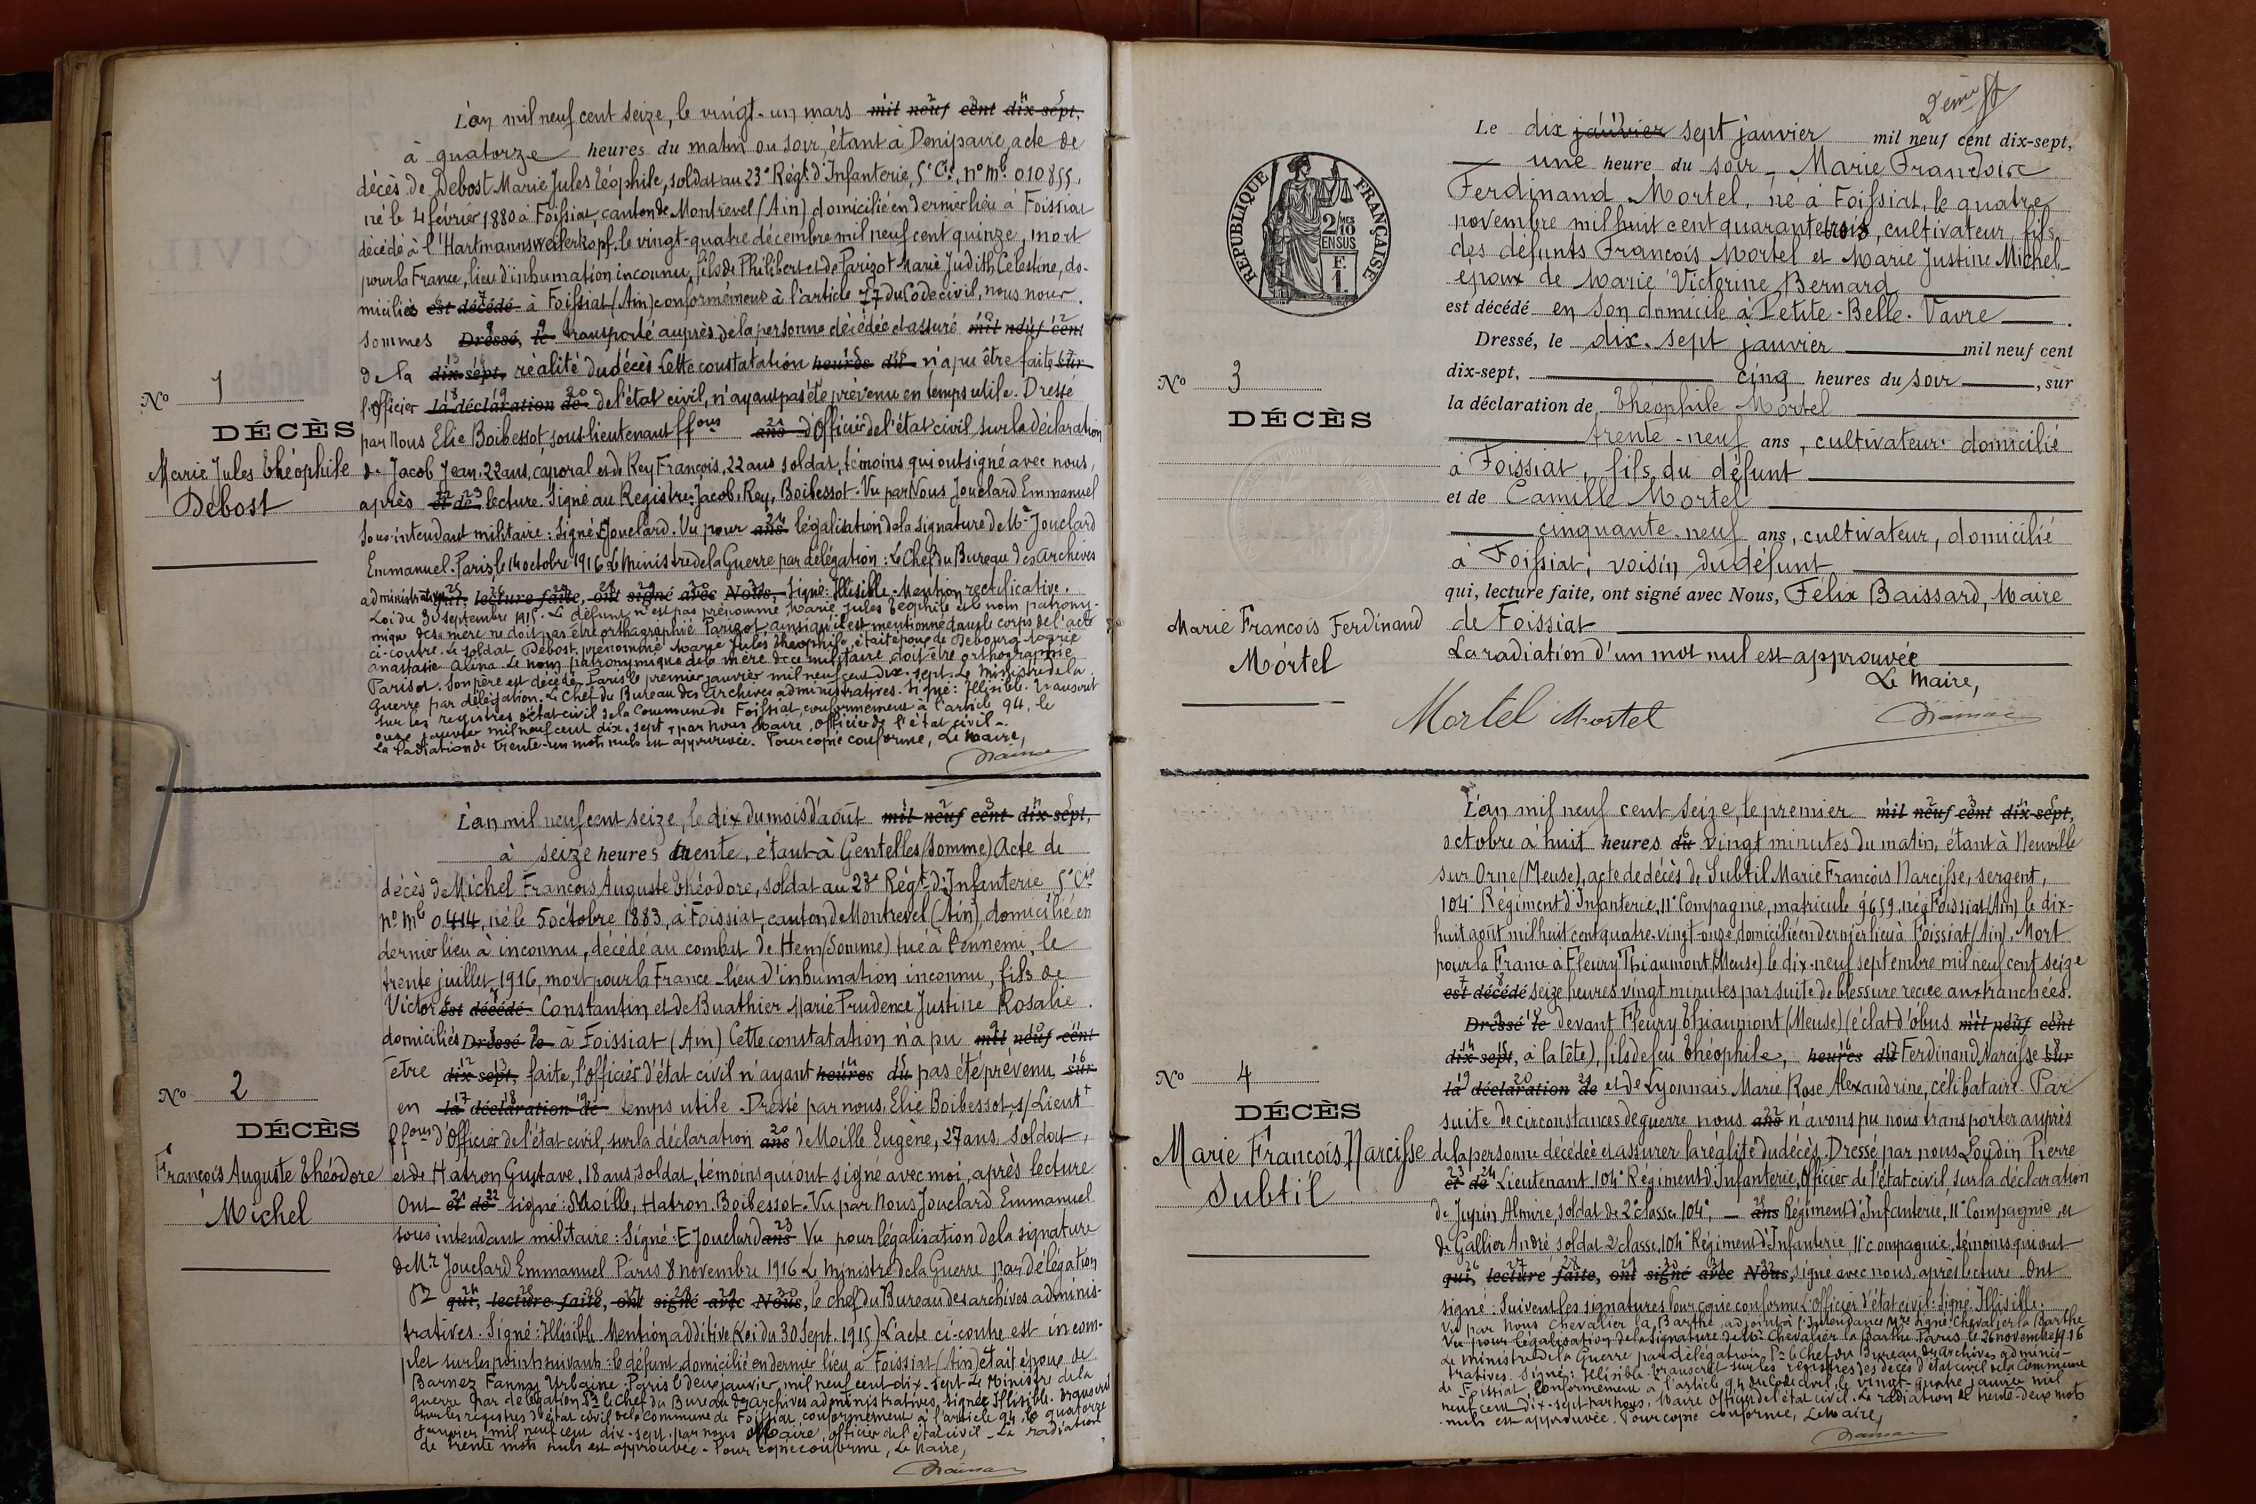 L'an mil neuf cent seize, le vingt-un mars mil neuf cent dix-sept,
à quatorze heures du matin ou soir, étant à Denipaire, acte de
décès de Debost Marie Jules Léophile, soldat au 23e Régt d'Infanterie, 5e Cie, no mle 010855,
né le 4 février 1880 à Foissiat, canton de Montrevel (Ain) domicilié en dernier lieu à Foissiat
décédé à l'Hartmannsweilerkopf, le vingt-quatre décembre mil neuf cent quinze, mort
pour la France, lieu d'inhumation inconnu, fils de Philibert et de Parigot Marie Judith Célestine, do-
miciliés est décédé à Foissiat (Ain) conformément à l'article 77 du Code civil, nous nous
sommes Dressé, le transporté auprès de la personne décédée et assuré mil neuf cent
de la dix-sept, réalité du décès Cette constatation heures du n'a pu être faite sur
l'officier la déclaration de de l'état civil, n'ayant pas été prévenu en temps utile. Dressé
par Nous Elie Boibessot sous-lieutenant ffous ans d'Officier de l'état civil sur la déclaration
No 1
DÉCÈS
Marie Jules Théophile
Debost
de Jacob Jean, 22 ans, caporal et de Rey François, 22 ans soldat, témoins qui ont signé avec nous,
après et de lecture. Signé au Registre: Jacob, Rey, Boibessot. Vu par Nous Jouclard Emmanuel
Sous-intendant militaire: Signé E Jouclard. Vu pour ans légalisation de la signature de Mr Jouclard
Emmanuel. Paris, le 14 octobre 1916 Le Ministre de la Guerre par délégation: Le Chef du Bureau des Archives
administratives qui, lecture faite, ont signé avec Nous, Signé: Illisible. Mention rectificative.
Loi du 30 septembre 1915. Le défunt n'est pas prénommé Marie Jules Léophile et le nom patrony-
mique de sa mère ne doit pas être orthographié Parigot ainsi qu'il est mentionné dans le corps de l'acte
ci-contre. Le soldat Debost prénommé Marie Jules Théophile était époux de Debourg Marie
Anastasie Alina. Le nom patronymique de la mère de ce militaire doit être orthographié
Parisot. Son père est décédé. Paris le premier janvier mil neuf cent dix-sept. Le Ministre de la
Guerre par délégation. Le Chef du Bureau des Archives administratives. Signé: Illisible. Transcrit
sur les registres d'état civil de la Commune de Foissiat, conformément à l'article 94, le
onze janvier mil neuf cent dix-sept, par nous Maire, officier de l'état civil.
La radiation de trente-un mots nuls est approuvée. Pour copie conforme, Le Maire,
L'an mil neuf cent seize, le dix du mois d'août mil neuf cent dix-sept,
à seize heures trente, étant à Gentelles (Somme) Acte de
décès de Michel François Auguste Théodore, soldat au 23e Régt d'Infanterie 5e Cie
no mle 0414, né le 5 octobre 1883, à Foissiat, canton de Montrevel (Ain), domicilié en
dernier lieu à inconnu, décédé au combat de Hem (Somme) tué à l'ennemi, le
trente juillet 1916, mort pour la France - lieu d'inhumation inconnu, fils de
Victor est décédé Constantin et de Buathier Marie Prudence Justine Rosalie
domiciliés Dressé le à Foissiat (Ain) Cette constatation n'a pu mil neuf cent
être dix-sept, faite, l'officier d'état civil n'ayant heures du pas été prévenu sur
en la déclaration de temps utile. Dressé par nous, Elie Boibessot, s/Lieutt
No 2
DÉCÈS
François Auguste Théodore
Michel
ffous d'Officier de l'état civil, sur la déclaration ans de Moille Eugène, 27 ans, soldat,
et de Hatron Gustave, 18 ans, soldat, témoins qui ont signé avec moi, après lecture
Ont et de signé: Moille, Hatron, Boibessot. Vu par Nous Jouclard Emmanuel
sous intendant militaire: Signé: E Jouclard ans Vu pour légalisation de la signature
de Mr Jouclard Emmanuel Paris 8 novembre 1916 Le Ministre de la Guerre par délégation
Pr qui, lecture faite, ont signé avec Nous, le chef du Bureau des archives adminis-
tratives. Signé: Illisible. Mention additive (Loi du 30 Sept. 1915) L'acte ci-contre est incom-
plet sur les points suivants: le défunt, domicilié en dernier lieu à Foissiat (Ain) était époux de
Barnez Fanny Urbaine. Paris le deux janvier mil neuf cent dix-sept. Le Ministre de la
guerre par délégation Pr le Chef du Bureau des archives administratives, Signé: Illisible. Transcrit
sur les registres d'état civil de la Commune de Foissiat, conformément à l'article 94, le quatorze
Janvier mil neuf cent dix-sept, par nous Maire, Officier de l'état civil. La radiation
de trente mots nuls est approuvée. Pour copie conforme, Le Maire,
2ème
RÉPUBLIQUE FRANÇAISE
2/10 MES
EN SUS
F.
1.
Le dix janvier sept janvier mil neuf cent dix-sept,
une heure du soir, Marie François
Ferdinand Mortel, né à Foissiat, le quatre
novembre mil huit cent quarante trois, cultivateur, fils
des défunts François Mortel et Marie Justine Michel
époux de Marie Victorine Bernard
est décédé en son domicile à Petite-Belle-Vavre
Dressé, le dix-sept janvier mil neuf cent
dix-sept, cinq heures du soir, sur
la déclaration de Théophile Mortel
trente-neuf ans, cultivateur domicilié
à Foissiat, fils du défunt
et de Camille Mortel
cinquante-neuf ans, cultivateur, domicilié
à Foissiat, voisin du défunt
qui, lecture faite, ont signé avec Nous, Félix Baissard, Maire
de Foissiat
La radiation d'un mot nul est approuvée
Le Maire,
Mortel Mortel
No 3
DÉCÈS
Marie François Ferdinand
Mortel
L'an mil neuf cent seize, le premier mil neuf cent dix-sept,
octobre à huit heures du vingt minutes du matin, étant à Neuville
sur Orne (Meuse), acte de décès de Subtil Marie François Narcisse, sergent,
104e Régiment d'Infanterie, 11e Compagnie, matricule 9659, né à Foissiat (Ain) le dix-
huit août mil huit cent quatre-vingt-onze, domicilié en dernier lieu à Foissiat (Ain). Mort
pour la France à Fleury Thiaumont (Meuse) le dix-neuf septembre mil neuf cent seize
est décédé seize heures vingt minutes par suite de blessure reçue aux tranchées.
Dressé le devant Fleury Thiaumont (Meuse) (éclat d'obus mil neuf cent
dix-sept, à la tête), fils de feu Théophile, heures du Ferdinand Narcisse sur
la déclaration de et de Lyonnais Marie Rose Alexandrine, célibataire. Par
suite de circonstances de guerre nous ans n'avons pu nous transporter auprès
No 4
DÉCÈS
Marie François Narcisse
Subtil
de la personne décédée et assurer la réalité du décès. Dressé par nous Loydin Pierre
et de Lieutenant 104e Régiment d'Infanterie, Officier de l'état civil, sur la déclaration
de Jupin Almire, soldat de 2e classe, 104e, ans Régiment d'Infanterie, 11e Compagnie, et
de Gallier André, soldat 2e classe, 104e Régiment d'Infanterie, 11e compagnie, témoins qui ont
qui, lecture faite, ont signé avec Nous, signé avec nous, après lecture. Ont
signé: Suivent les signatures Pour copie conforme L'officier d'état civil: Signé. Illisible.
Vu par Nous Chevalier la Barthe, adjoint à l'Intendance Mre Signé Chevalier la Barthe
Vu pour légalisation de la signature de Mr Chevalier la Barthe. Paris le 26 novembre 1916
Le Ministre de la Guerre par délégation Pr le Chef du Bureau des Archives adminis-
tratives. Signé: Illisible. Transcrit sur les registres des décès d'état civil de la Commune
de Foissiat, conformément à l'article 94 du Code civil, le vingt-quatre janvier mil
neuf cent dix-sept par nous, Maire officier de l'état civil. La radiation de trente-deux mots
nuls est approuvée. Pour copie conforme, Le Maire,